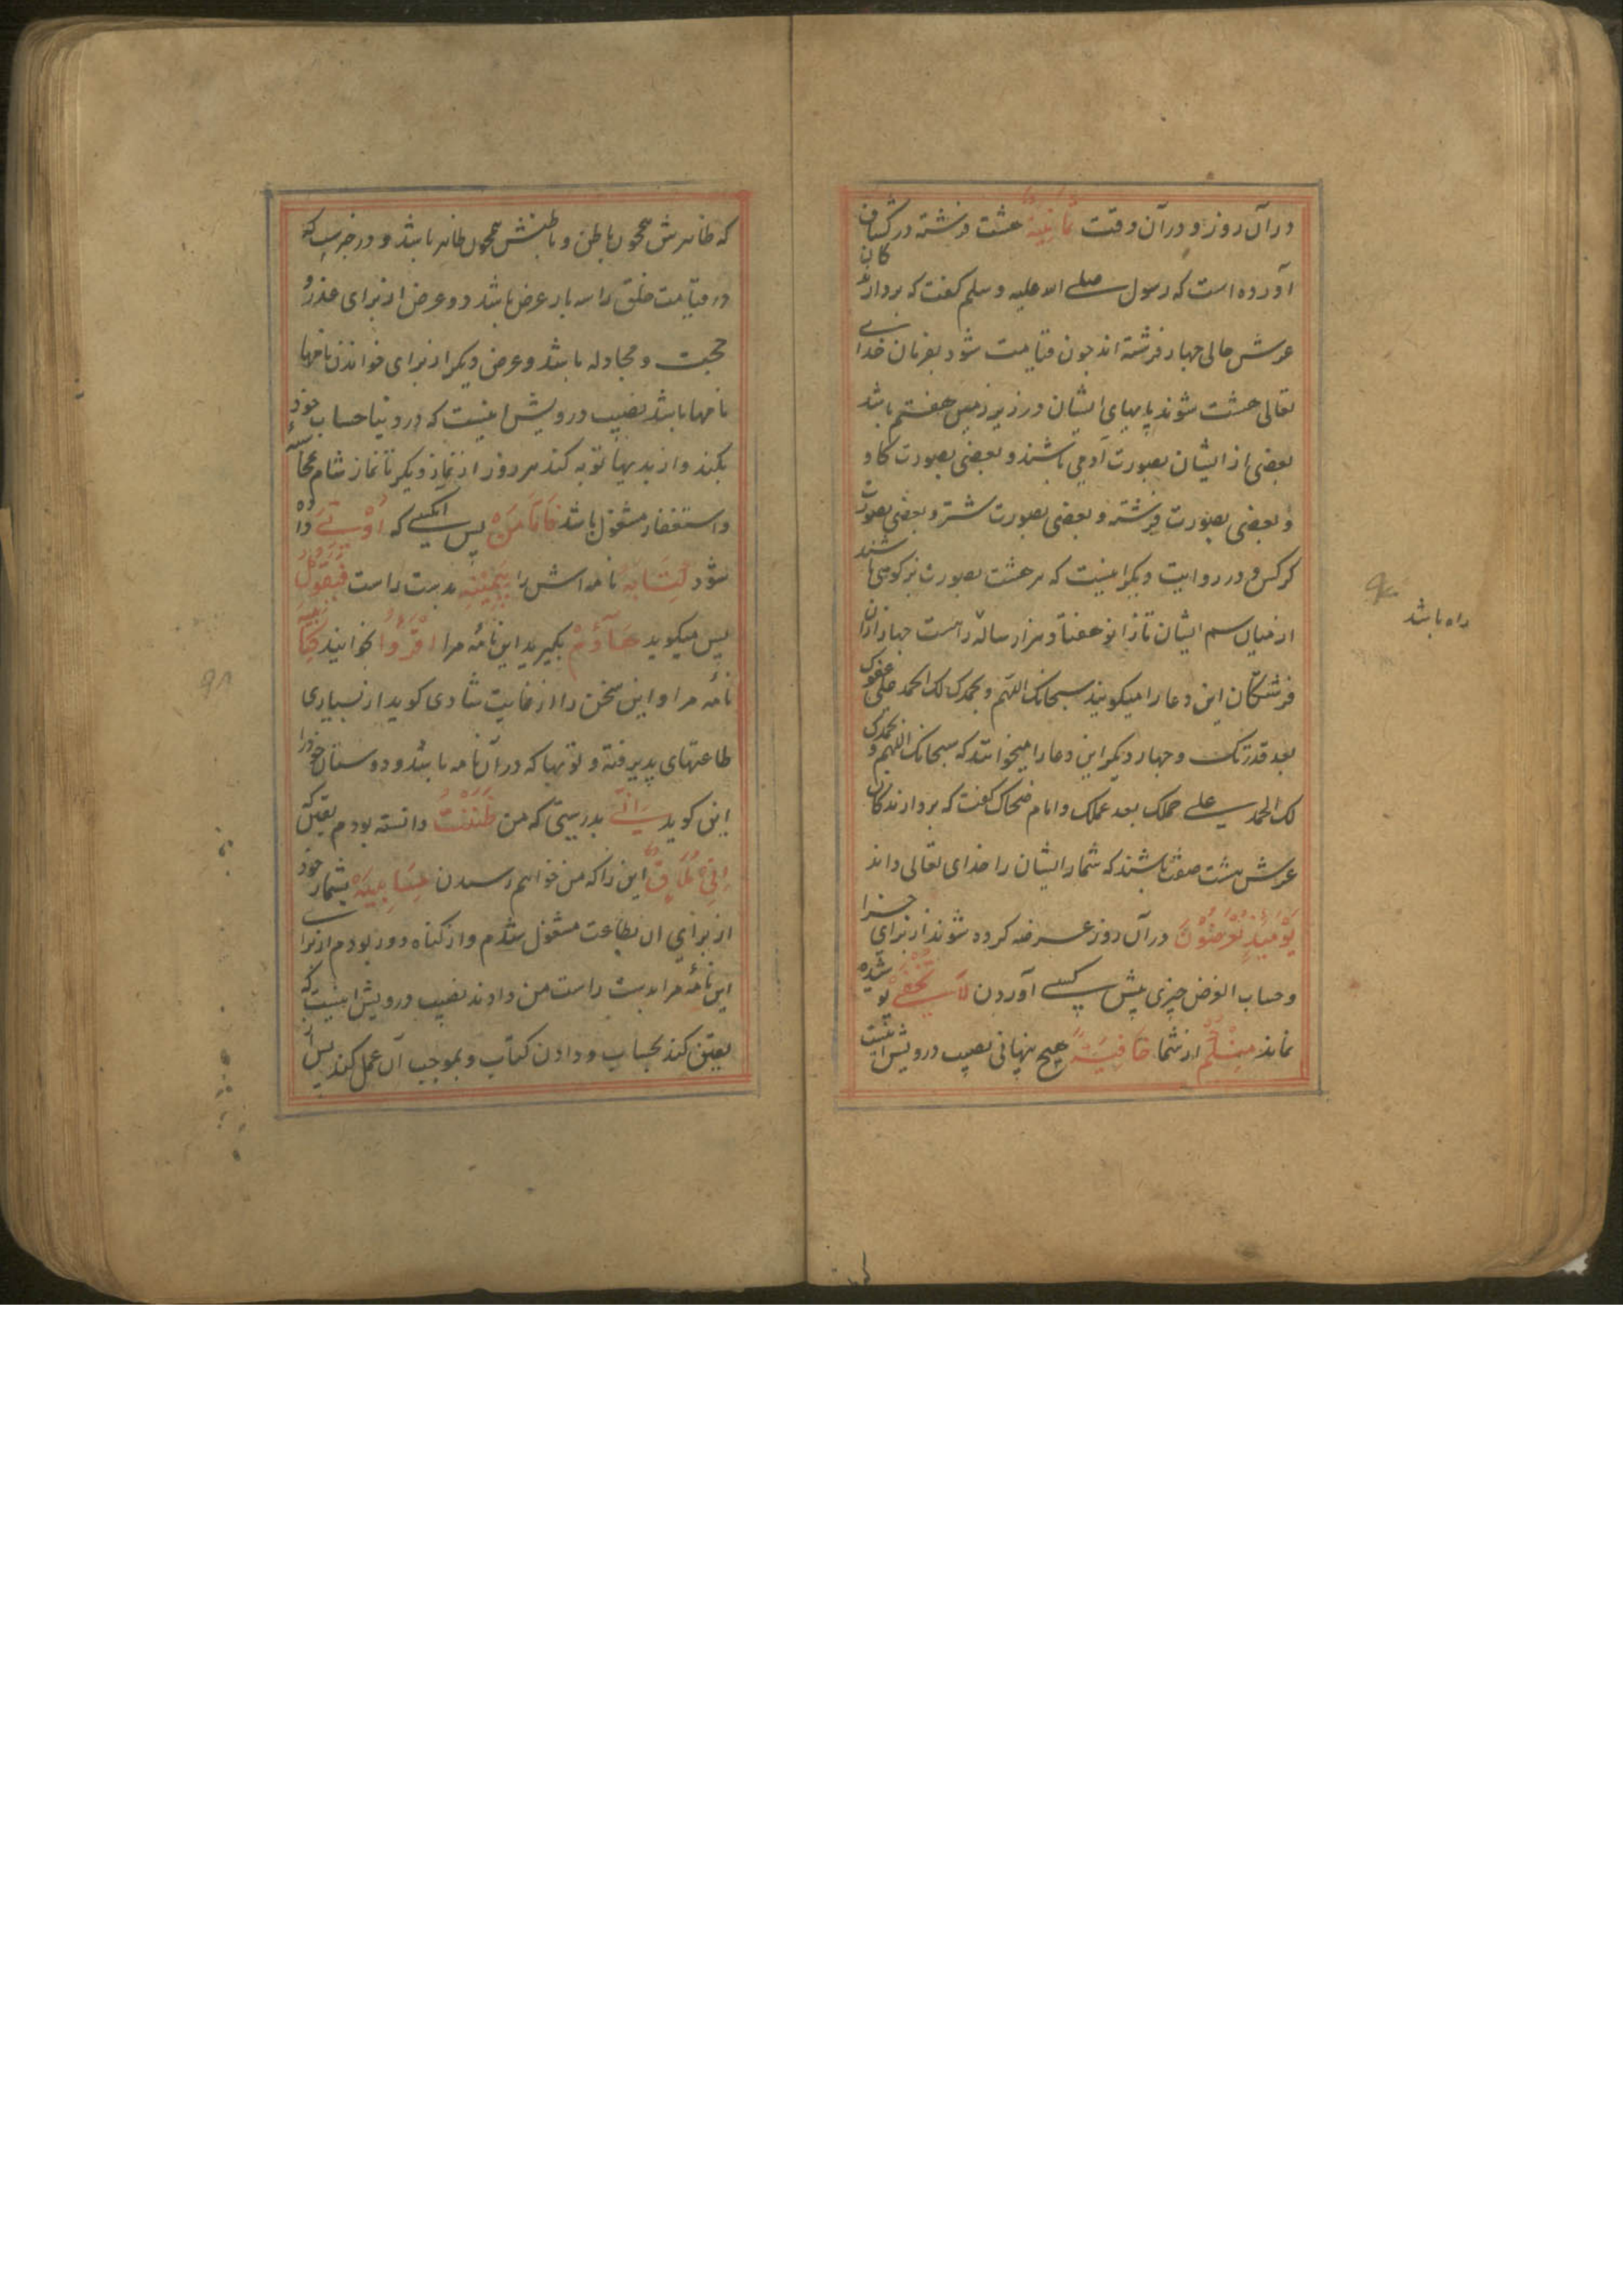 درآن روز و درآن وقت ثَمَانِيَةٌ هشت فرشته در کشاف
آورده است که رسول صلی الله علیه وسلم کفت که بردارند
کان
عرش حالی چهار فرشته اند چون قیامت شود بفرمان خدای
تعالی هشت شوند پایهای ایشان در زیر زمین هفتم باشد
بعضی از ایشان بصورت آدمی باشند و بعضی بصورت کاو
و بعضی بصورت فرشته و بعضی بصورت شتر و بعضی بصورت
کرکس و در روایت دیکر اینست که هر هشت بصورت بزکوهی باشند
از میان سم ایشان تا زانو هفتاد هزار ساله راهست چهار ازان
راه باشد
فرشتکان این دعا را میکویند سبحانک اللهم وبحمدک لک الحمد علی عفوک
بعد قدرتک و چهار دیکر این دعا را میخوانند که سبحانک اللهم وبحمدک
لک الحمد علی حلمک بعد علمک وامام ضحاک کفت که بردارندکان
عرش هشت صف باشند که شمار ایشان را خدای تعالی داند
يَوْمَئِذٍ تُعْرَضُوْنَ درآن روز عرضه کرده شوند از برای جزا
وحساب العرض چیزی پیش کسی آوردن لَا تَخْفَى پوشیده
نماند مِنْكُمْ از شما خَافِيَةٌ هیچ پنهانی نصیب درویش اینست
که ظاهرش همچون باطن و باطنش همچون ظاهر باشد و در خبرست که
در قیامت خلق را سه بار عرض باشد دو عرض از برای عذر و
حجت و مجادله باشد و عرض دیکر از برای خواندن نامها
نامها باشد نصیب درویش اینست که در دنیا حساب خود
بکند و از بدیها توبه کند هر روز از نماز دیکر تا نماز شام محاسبه
واستغفار مشغول باشد فَاَمَّا مَنْ پس آنکسی که اُوْتِيَ داده
شود كِتَابَهُ نامه اش را بِيَمِيْنِهِ بدست راست فَيَقُوْلُ
پس میکوید هَاؤُمُ بکیرید این نامهٔ مرا اقْرَؤُا بخوانید كِتَابِيَهْ
نامهٔ مرا و این سخن را از غایت شادی کوید از بسیاری
طاعتهای پذیرفته و توبها که درآن نامه باشد و دوستان خود را
این کوید اِنِّيْ بدرستی که من ظَنَنْتُ دانسته بودم یقین که
اَنِّيْ مُلَاقٍ این را که من خواهم رسیدن حِسَابِيَهْ بشمار خود
از برای آن بطاعت مشغول شدم و از کناه دور بودم از برای
این نامهٔ مرا بدست راست من دادند نصیب درویش اینست که
یقین کند بحساب و دادن کتاب و بموجب آن عمل کند پس از